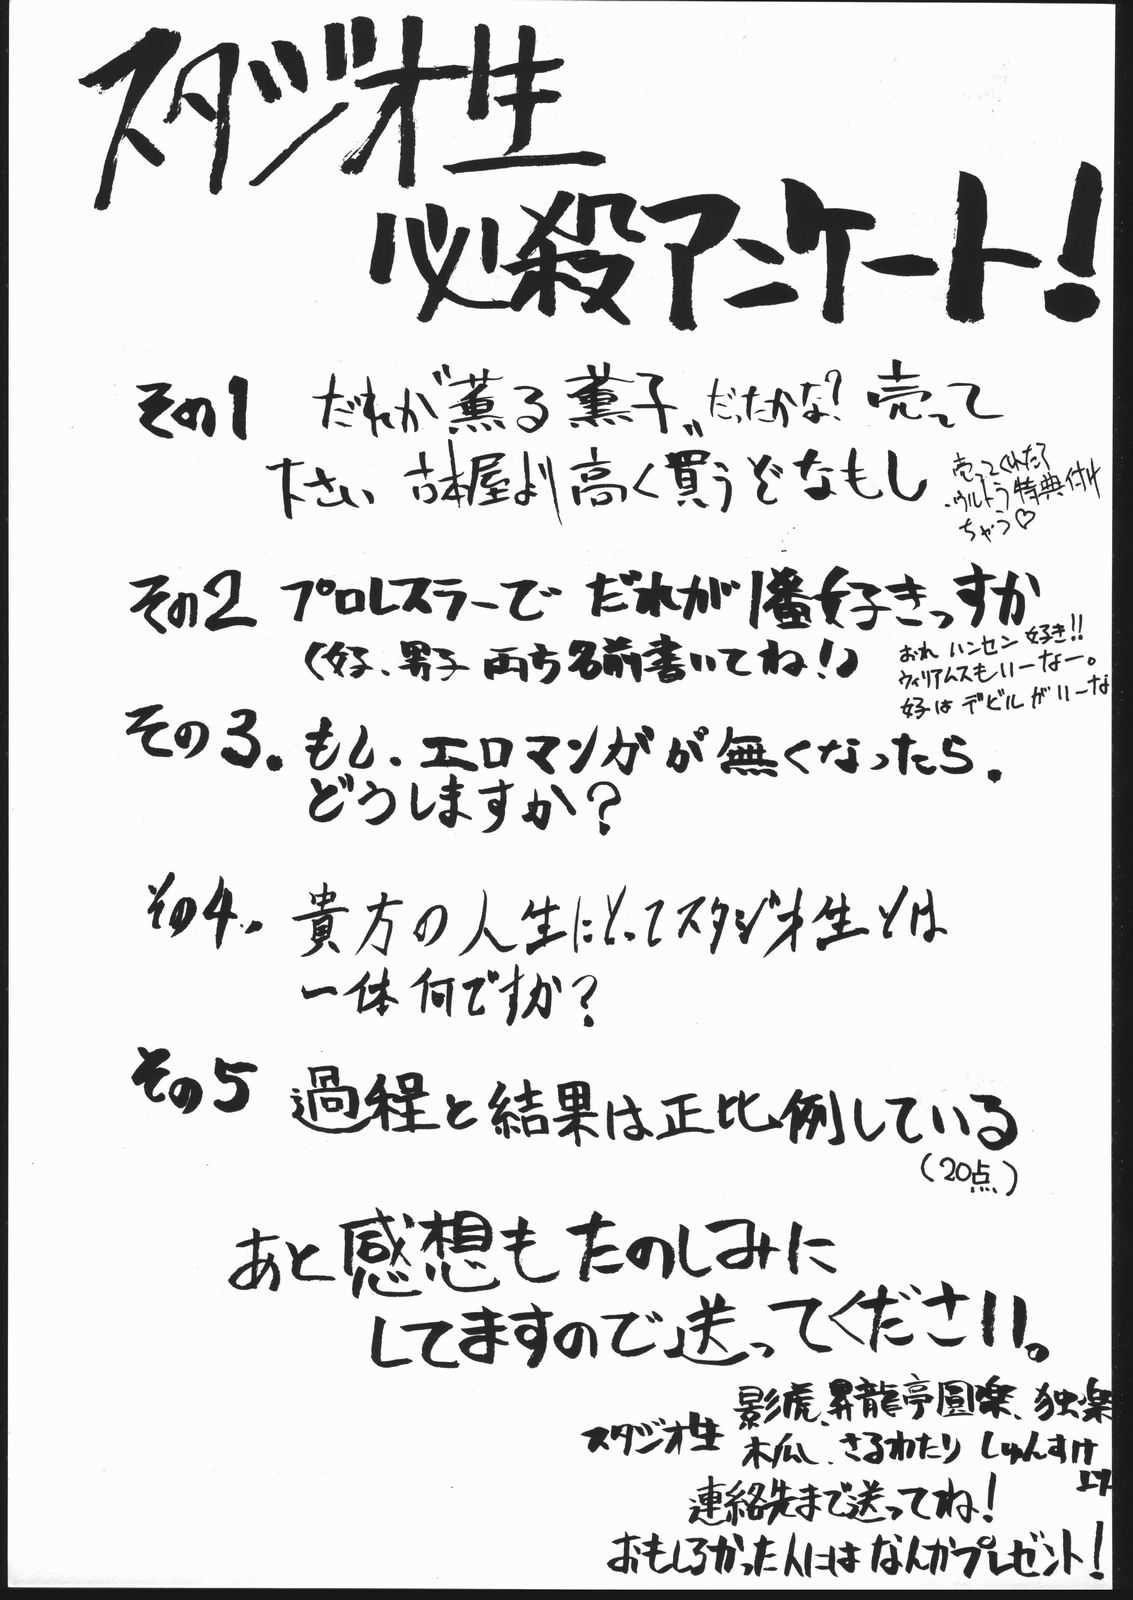 スタジオ生
必殺アンケート!
その1 だれか“薫る薫子”だったかな?売って
下さい 古本屋より高く買うぞなもし
売ってくれたら
ウルトラ特典付け
ちゃう♡
その2 プロレスラーで だれが1番好きっすか
(女子、男子 両方名前書いてね!)
おれ ハンセン 好き!!
ウィリアムスもいーなー。
女子は デビルがいーな
その3. もし、エロマンガが無くなったら、
どうしますか?
その4. 貴方の人生にとってスタジオ生とは
一体何ですか?
その5 過程と結果は正比例している
(20点)
あと感想もたのしみに
してますので送ってください。
スタジオ生 影虎、昇龍亭圓楽、独楽
木瓜、さるわたり しゅんすけ
より
連絡先まで送ってね!
おもしろかった人にはなんかプレゼント!